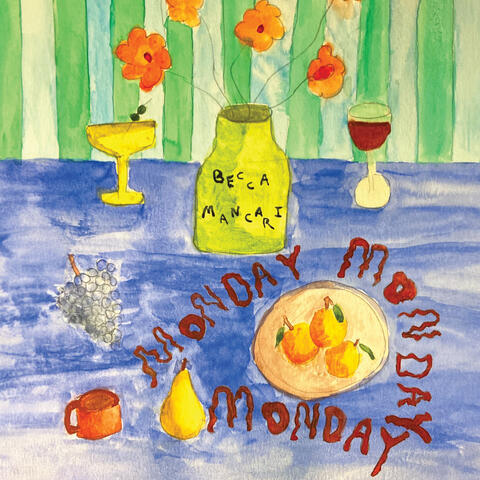 BECCA
MANCARI
MONDAY MONDAY
MONDAY